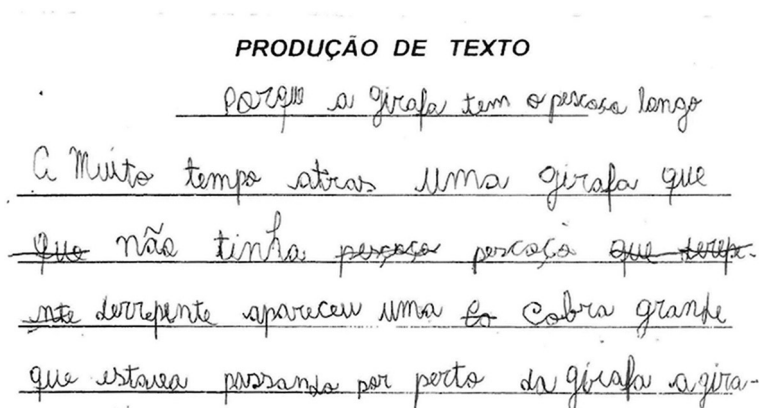 PRODUÇÃO DE TEXTO
Porque a girafa tem o pescoso longo
A Muito tempo atras uma girafa que
que não tinha pescoço pescoço que derepe-
nte derrepente apareceu uma co cobra grande
que estavea passando por perto da girafa a gira-